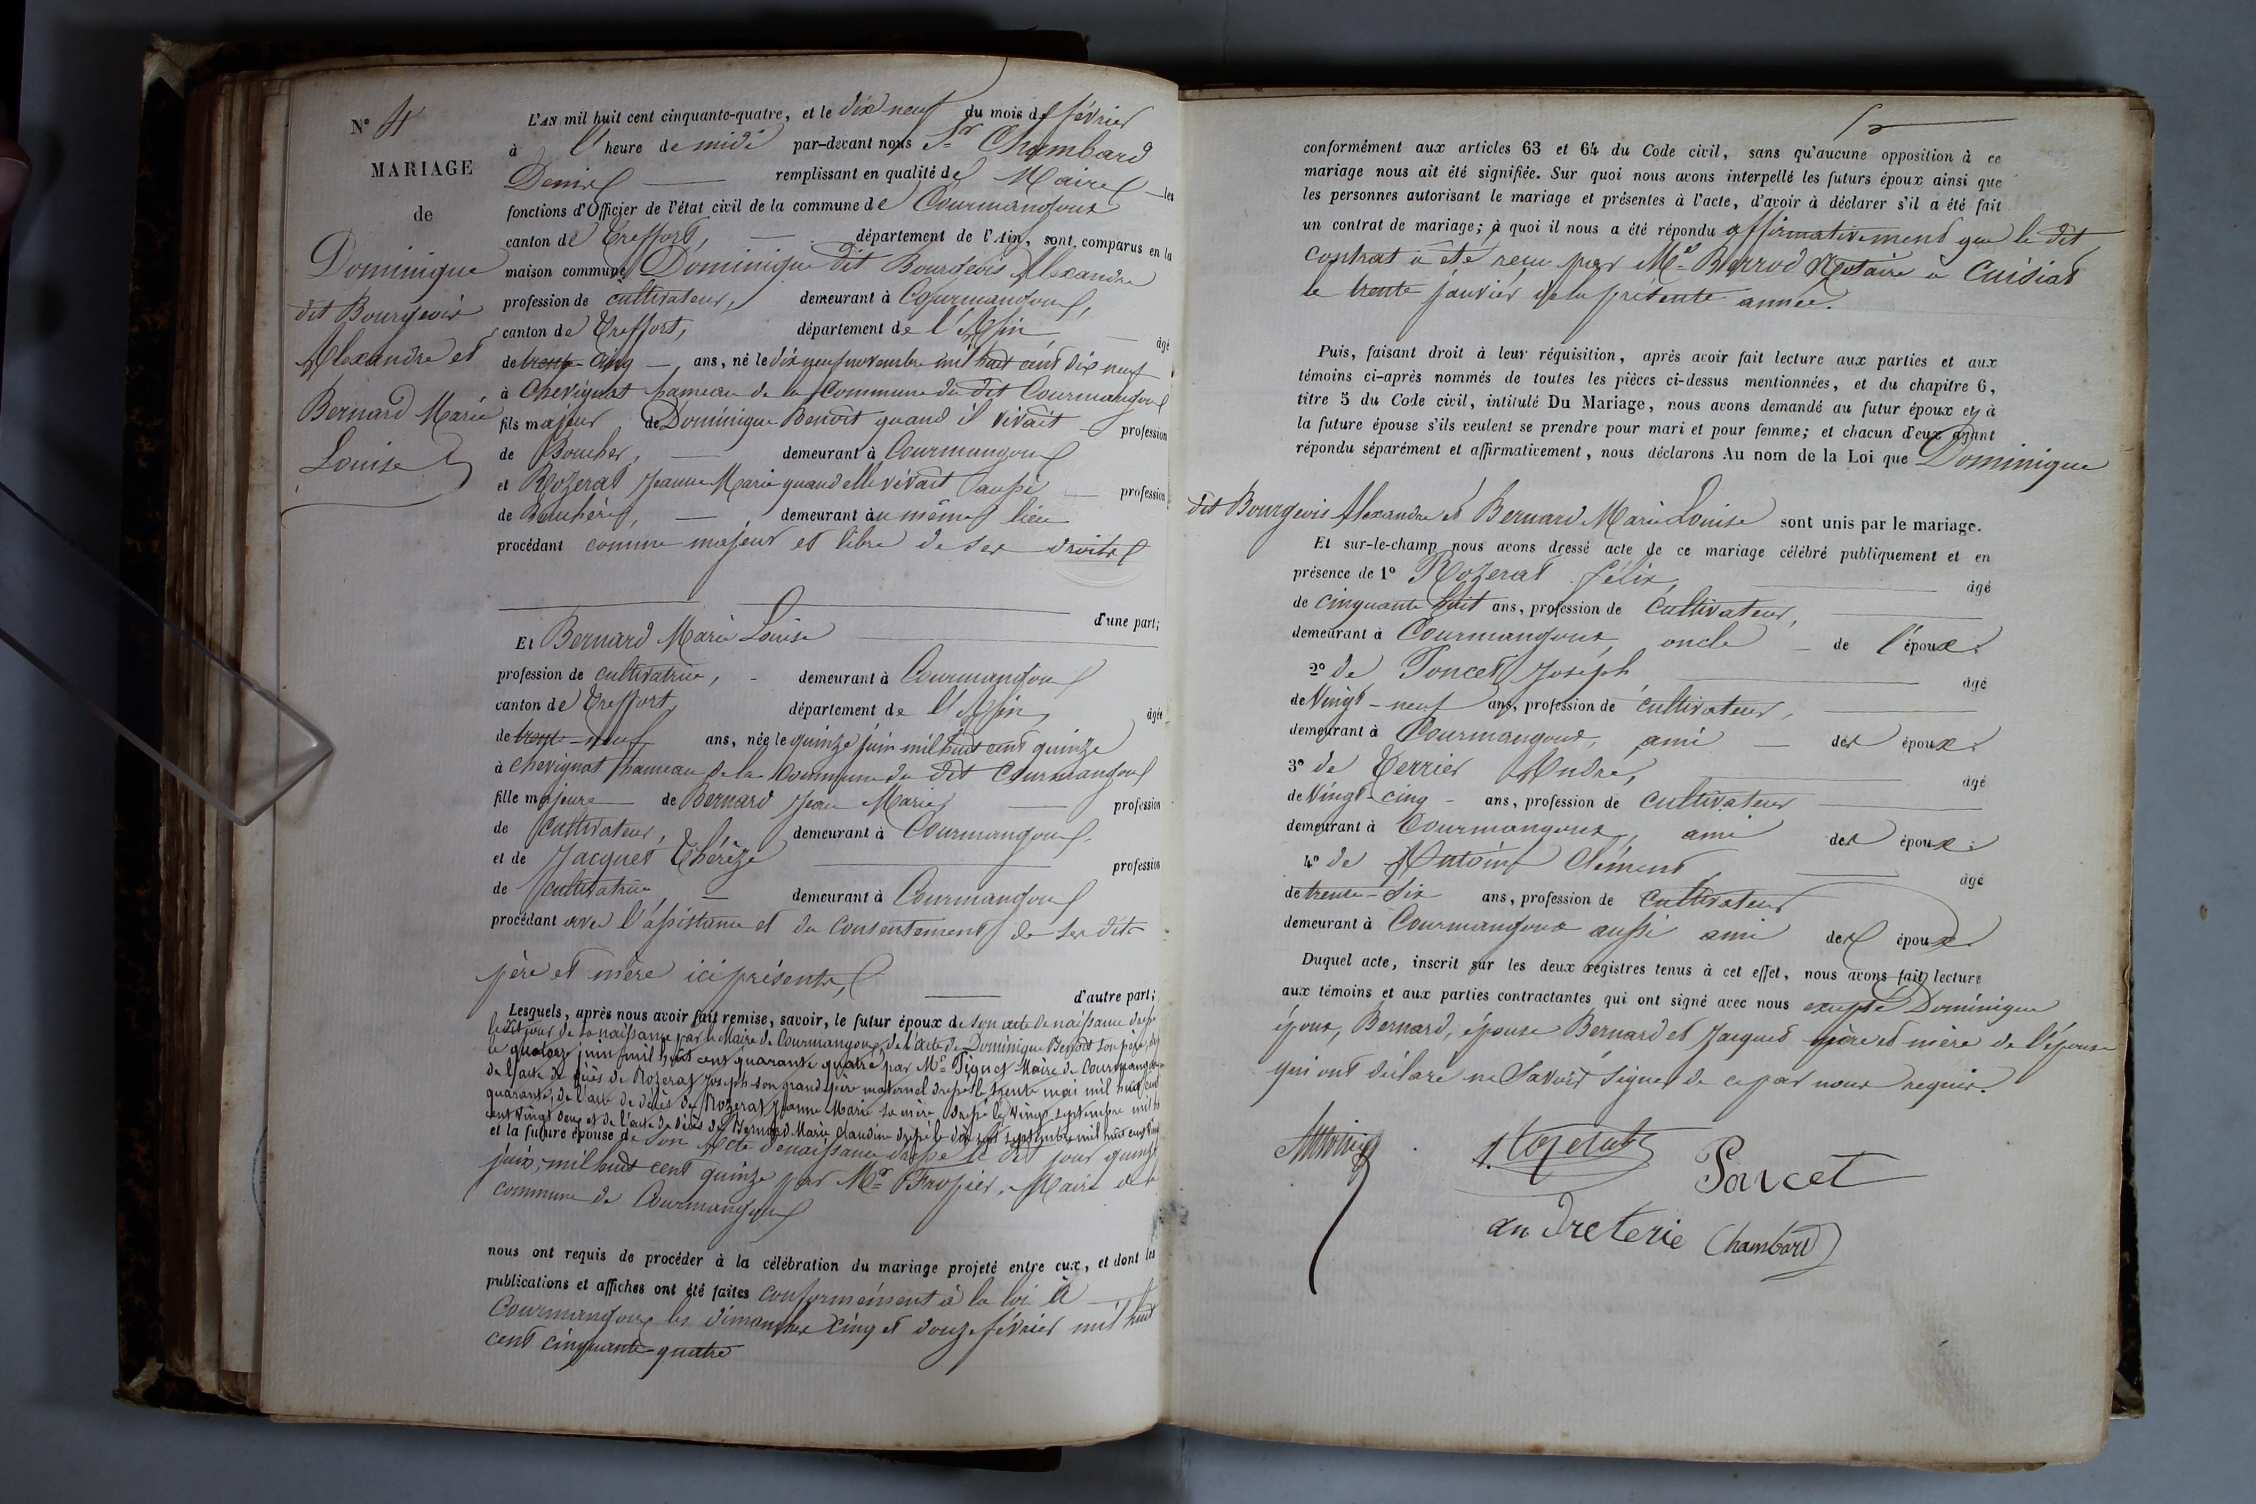 N° 4
MARIAGE
de
Dominique
dit Bourgeois
Alexandre et
Bernard Marie
Louise
L'AN mil huit cent cinquante-quatre, et le dix neuf du mois de février
à l'heure de midi par-devant nous Sr Chambard
Denis remplissant en qualité de Maire les
fonctions d'Officier de l'état civil de la commune de Courmangoux
canton de Treffort, département de l'Ain, sont comparus en la
maison commune Dominique dit Bourgeois Alexandre
profession de cultivateur, demeurant à Courmangoux,
canton de Treffort, département de l'Ain âgé
de trente-cinq ans, né le dix neuf novembre mil huit cent dix neuf
à Chevignat hameau de la Commune du dit Courmangoux
fils majeur de Dominique Benoît quand il vivait profession
de Boucher, demeurant à Courmangoux
et Rozerat Jeanne Marie quand elle vivait aussi profession
de Bouchère, demeurant au même lieu
procédant comme majeur et libre de ses droits
d'une part;
Et Bernard Marie Louise
profession de cultivatrice, demeurant à Courmangoux
canton de Treffort, département de l'Ain, âgée
de trente-neuf ans, née le quinze juin mil huit cent quinze
à Chevignat hameau de la Commune du dit Courmangoux
fille majeure de Bernard Jean Marie profession
de cultivateur, demeurant à Courmangoux
et de Jacquet Thérèze profession
de cultivatrice, demeurant à Courmangoux
procédant avec l'assistance et du consentement de ses dits
père et mère ici présents,
d'autre part;
Lesquels, après nous avoir fait remise, savoir, le futur époux de son acte de naissance dressé
le dit jour de sa naissance par le Maire de Courmangoux, de l'acte de Dominique Benoît son père,
le quatorze juin mil huit cent quarante quatre par Mr Piquet Maire de Courmangoux
de l'acte de décès de Rozerat Joseph son grand père maternel dressé le trente mai mil huit cent
quarante, de l'acte de décès de Rozerat Jeanne Marie sa mère, dressé le vingt septembre mil huit
cent vingt deux et de l'acte de décès de Bernard Marie Claudine dressé le dix sept septembre mil huit cent
et la future épouse de son acte de naissance dressé le dit jour quinze
juin, mil huit cent quinze par Mr Maire de la
commune de Courmangoux
nous ont requis de procéder à la célébration du mariage projeté entre eux, et dont les
publications et affiches ont été faites conformément à la loi à
Courmangoux les dimanches cinq et douze février mil huit
cent cinquante quatre
conformément aux articles 63 et 64 du Code civil, sans qu'aucune opposition à ce
mariage nous ait été signifiée. Sur quoi nous avons interpellé les futurs époux ainsi que
les personnes autorisant le mariage et présentes à l'acte, d'avoir à déclarer s'il a été fait
un contrat de mariage; à quoi il nous a été répondu affirmativement que le dit
contrat a été reçu par Me Berrod Notaire à Cuisiat
le trente janvier de la présente année.
Puis, faisant droit à leur réquisition, après avoir fait lecture aux parties et aux
témoins ci-après nommés de toutes les pièces ci-dessus mentionnées, et du chapitre 6,
titre 5 du Code civil, intitulé Du Mariage, nous avons demandé au futur époux et à
la future épouse s'ils veulent se prendre pour mari et pour femme; et chacun d'eux ayant
répondu séparément et affirmativement, nous déclarons Au nom de la Loi que Dominique
dit Bourgeois Alexandre et Bernard Marie Louise sont unis par le mariage.
Et sur-le-champ nous avons dressé acte de ce mariage célébré publiquement et en
présence de 1° Rozerat félix, âgé
de cinquante huit ans, profession de cultivateur,
demeurant à Courmangoux, oncle de l'époux.
2° de Poncet Joseph âgé
de Vingt-neuf ans, profession de cultivateur,
demeurant à Courmangoux, ami des époux.
3° de Terrier André, âgé
de Vingt-cinq ans, profession de cultivateur
demeurant à Courmangoux, ami des époux.
4° de Antoine Clément âgé
de trente-six ans, profession de cultivateur
demeurant à Courmangoux aussi ami des époux.
Duquel acte, inscrit sur les deux registres tenus à cet effet, nous avons fait lecture
aux témoins et aux parties contractantes qui ont signé avec nous excepté Dominique
époux, Bernard, épouse Bernard et Jacquet père et mère de l'épouse
qui ont déclaré ne savoir signer de ce par nous requis.
Antoine f. Rozerat Poncet
andre terie Chambard